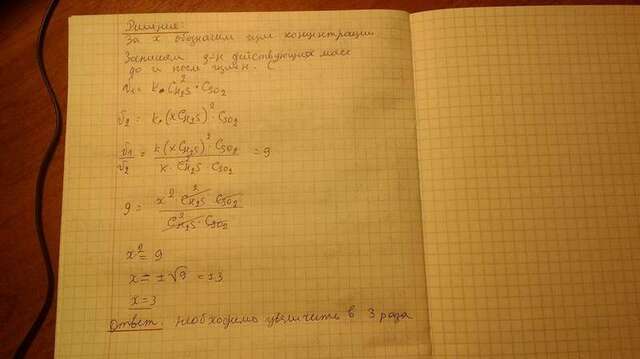 Решение:
За x обозначим изм концентрации
Запишем з-н действующих масс
до и после измен. C
v₁ = k · C²H₂S · CSO₂
v₂ = k · (xCH₂S)² · CSO₂
v₁/v₂ = k(xCH₂S)² · CSO₂ / k · C²H₂S · CSO₂ = 9
9 = x² · C²H₂S · CSO₂ / C²H₂S · CSO₂
x² = 9
x = ±√9 = ±3
x = 3
Ответ: необходимо увеличить в 3 раза